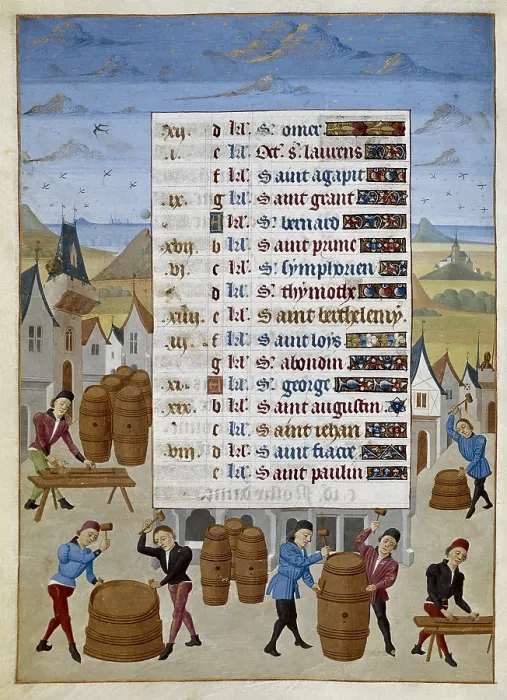 xij. d kl'. St omer
.i. e kl'. Oct. s. laurens
f kl'. Saint agapit
.ix. g kl'. Saint grant
A kl'. St bernard
xvij b kl'. Saint prime
.vj. c kl'. St symphorien
d kl'. St thymothe
xiiij e kl'. Saint berthelemy.
.iij. f kl'. Saint loys
g kl'. St abondin
.xi. A kl'. St george
.xix. b kl'. Saint augustin
c kl'. Saint iehan
viij d kl'. Saint fiacre
e kl'. Saint paulin